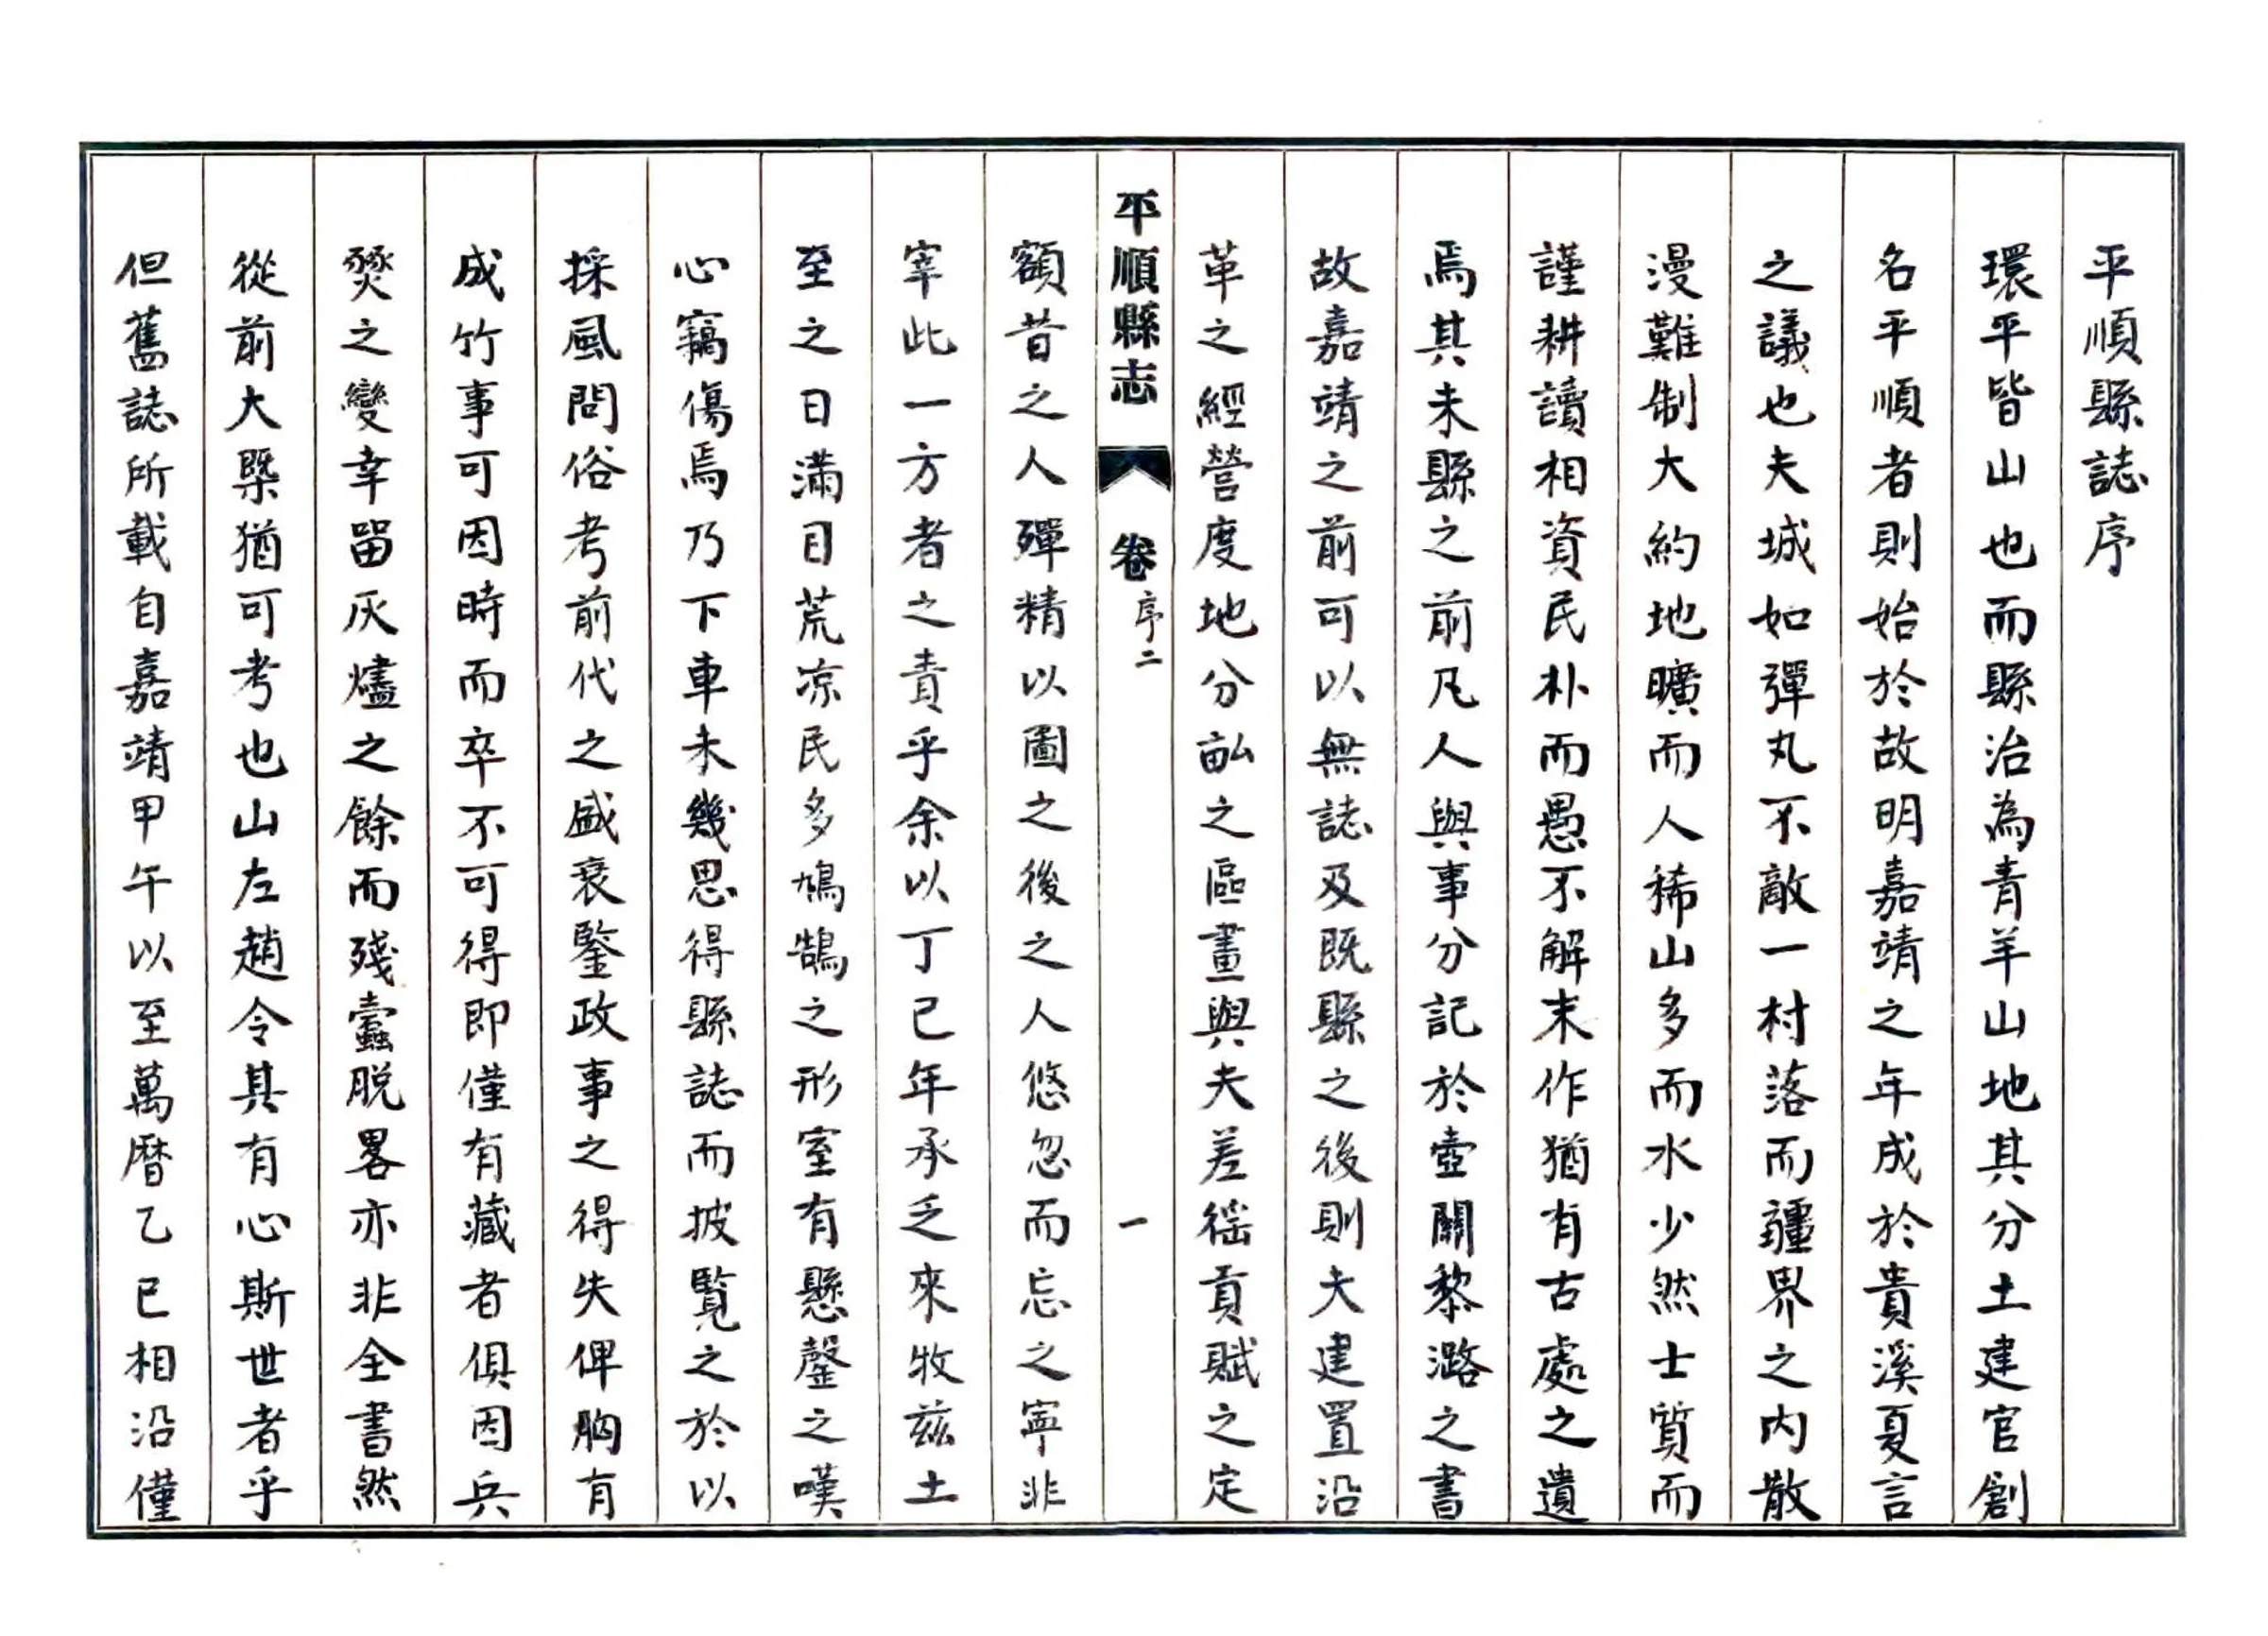 平順縣誌序
環平皆山也而縣治為青羊山地其分土建官創
名平順者則始於故明嘉靖之年成於貴溪夏言
之議也夫城如彈丸不敵一村落而疆界之內散
漫難制大約地曠而人稀山多而水少然士質而
謹耕讀相資民朴而愚不解末作猶有古處之遺
焉其未縣之前凡人與事分記於壺關黎潞之書
故嘉靖之前可以無誌及既縣之後則夫建置沿
革之經營度地分畝之區畫與夫差徭貢賦之定
平順縣志 卷 序二 一
額昔之人殫精以圖之後之人悠忽而忘之寧非
宰此一方者之責乎余以丁巳年承乏來牧茲土
至之日滿目荒凉民多鳩鵠之形室有懸罄之嘆
心竊傷焉乃下車未幾思得縣誌而披覽之於以
採風問俗考前代之盛衰鑒政事之得失俾胸有
成竹事可因時而卒不可得即僅有藏者俱因兵
燹之變幸留灰燼之餘而殘蠹脫畧亦非全書然
從前大槩猶可考也山左趙令其有心斯世者乎
但舊誌所載自嘉靖甲午以至萬曆乙巳相沿僅